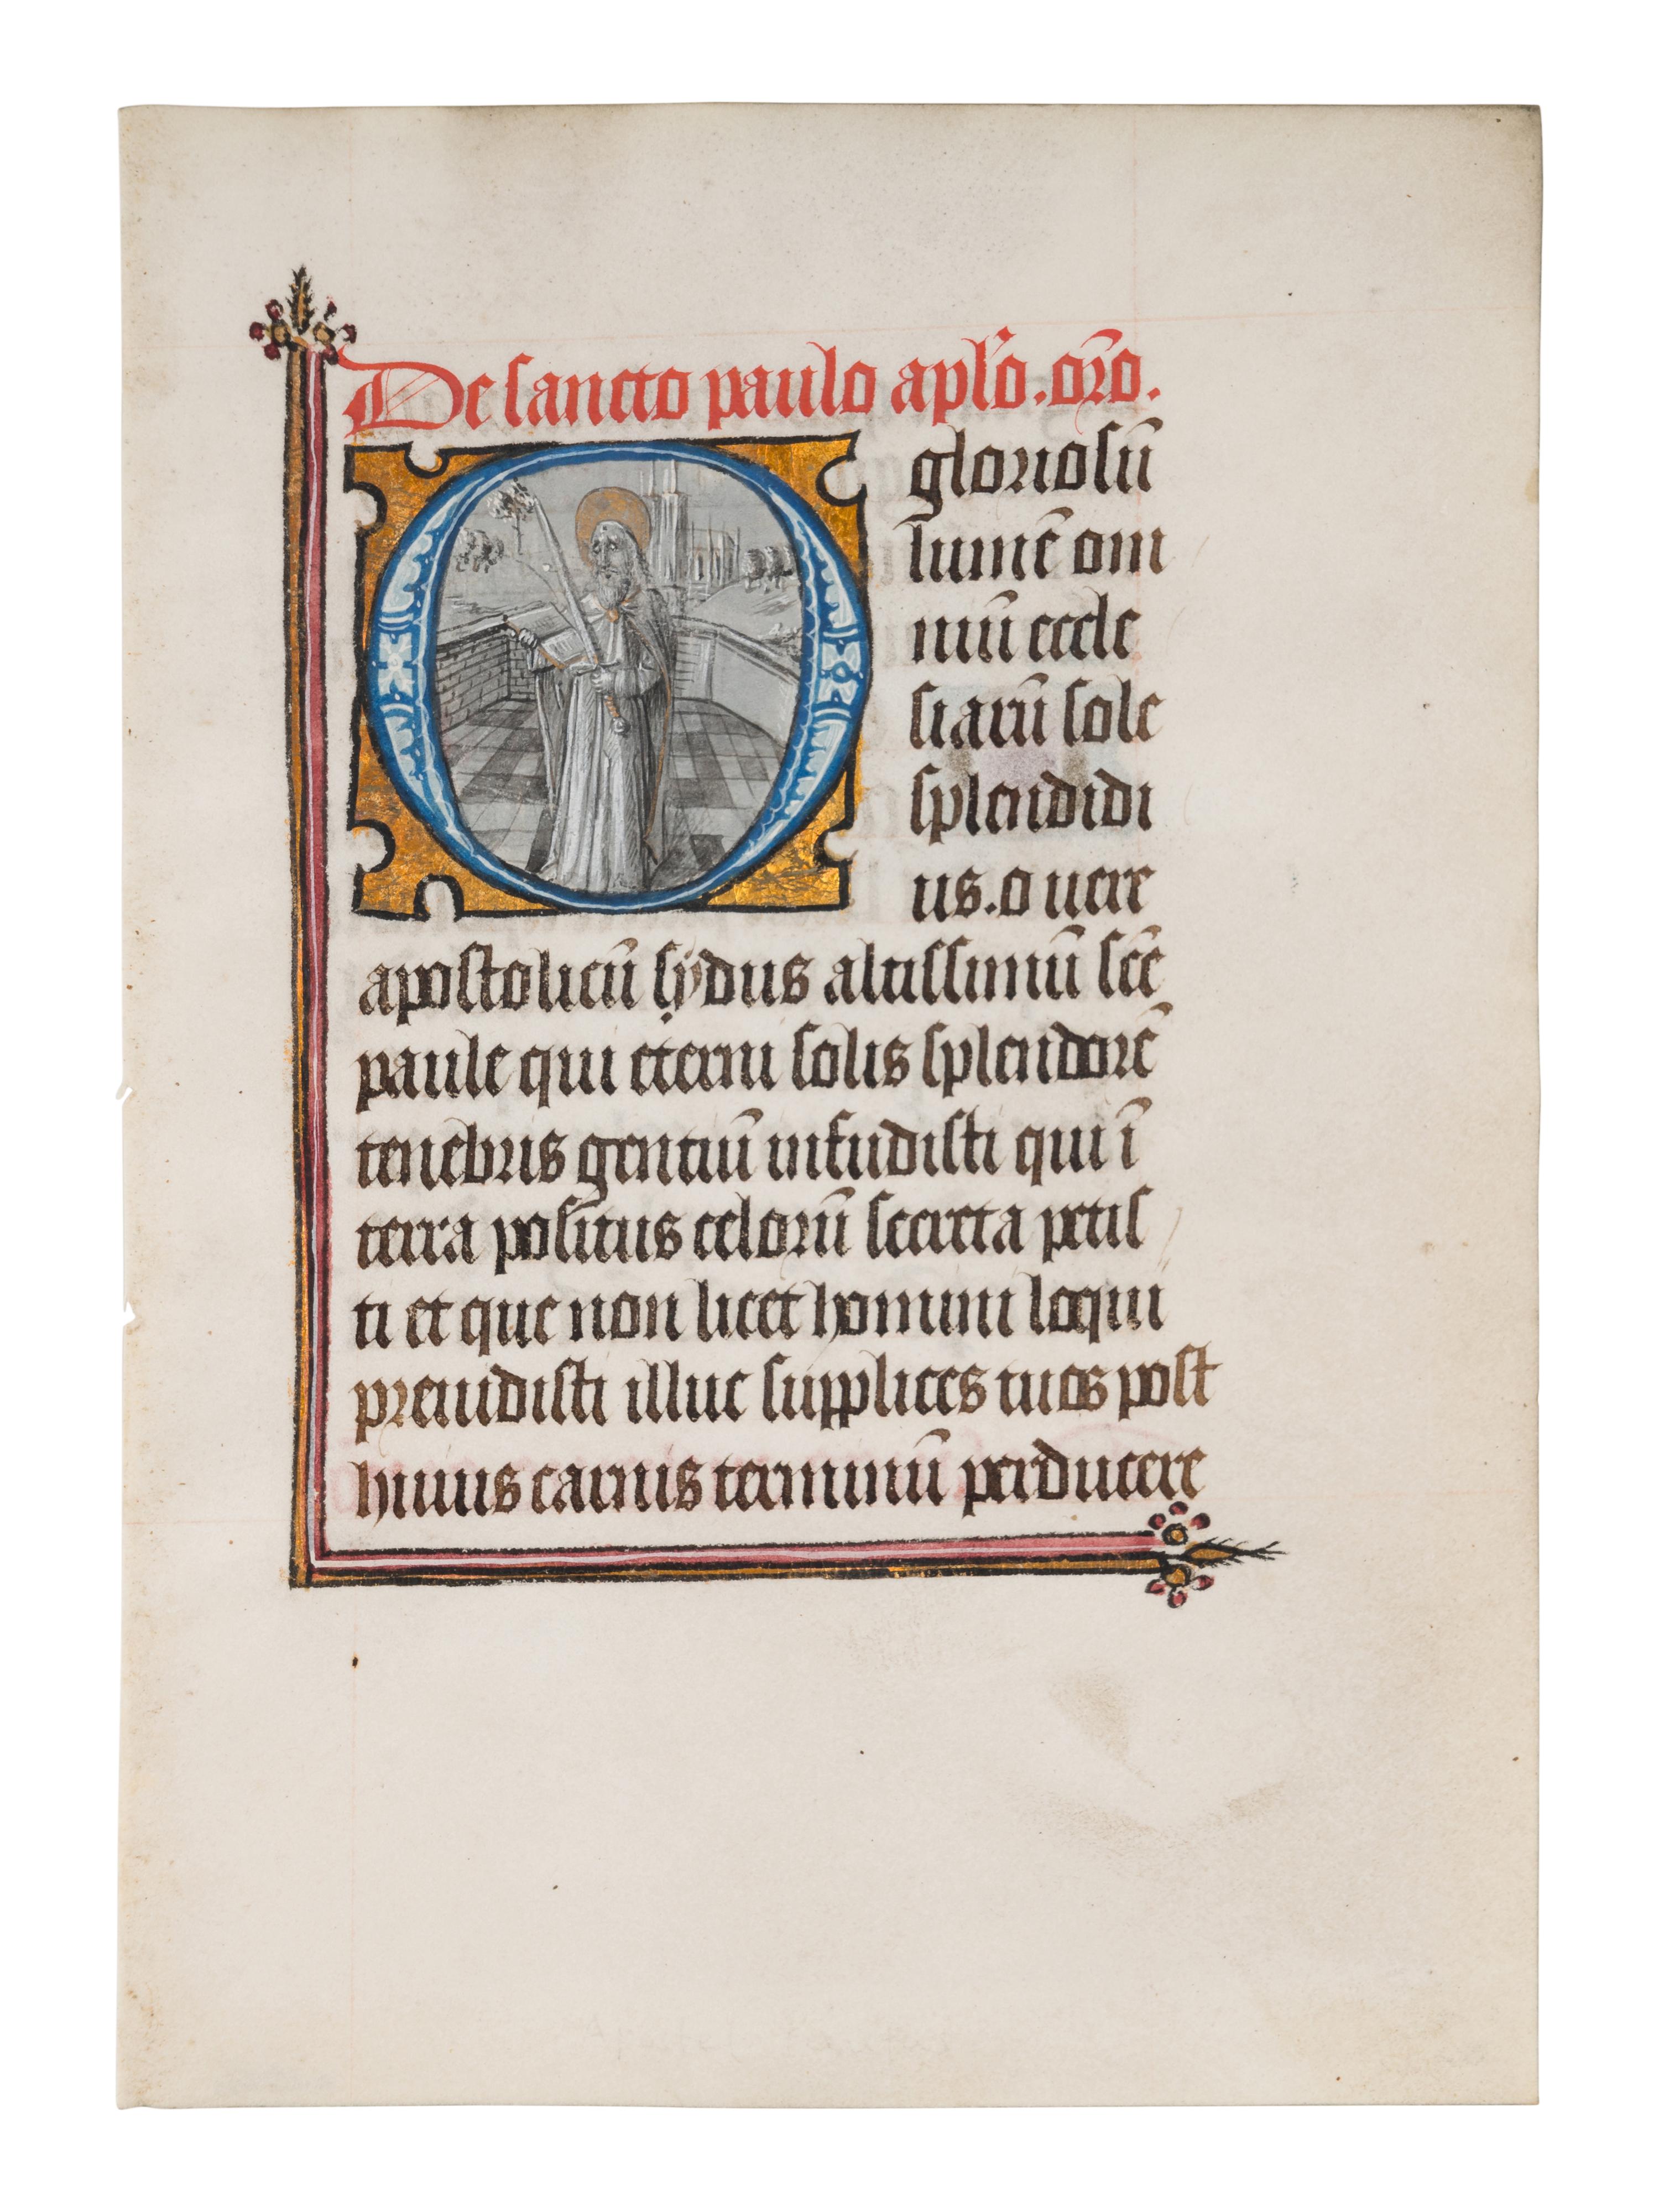 De sancto paulo apl̄o. or̄o.
O gloriosū
lumē om
niū eccle
siarū sole
splendidi
us. o uere
apostolicū sydus altissimū scē
paule qui eterni solis splendorē
tenebris gentiū infudisti qui ī
terra positus celorū secreta petis
ti et que non licet homini loqui
preuidisti illuc supplices tuos post
huius carnis terminū perducere